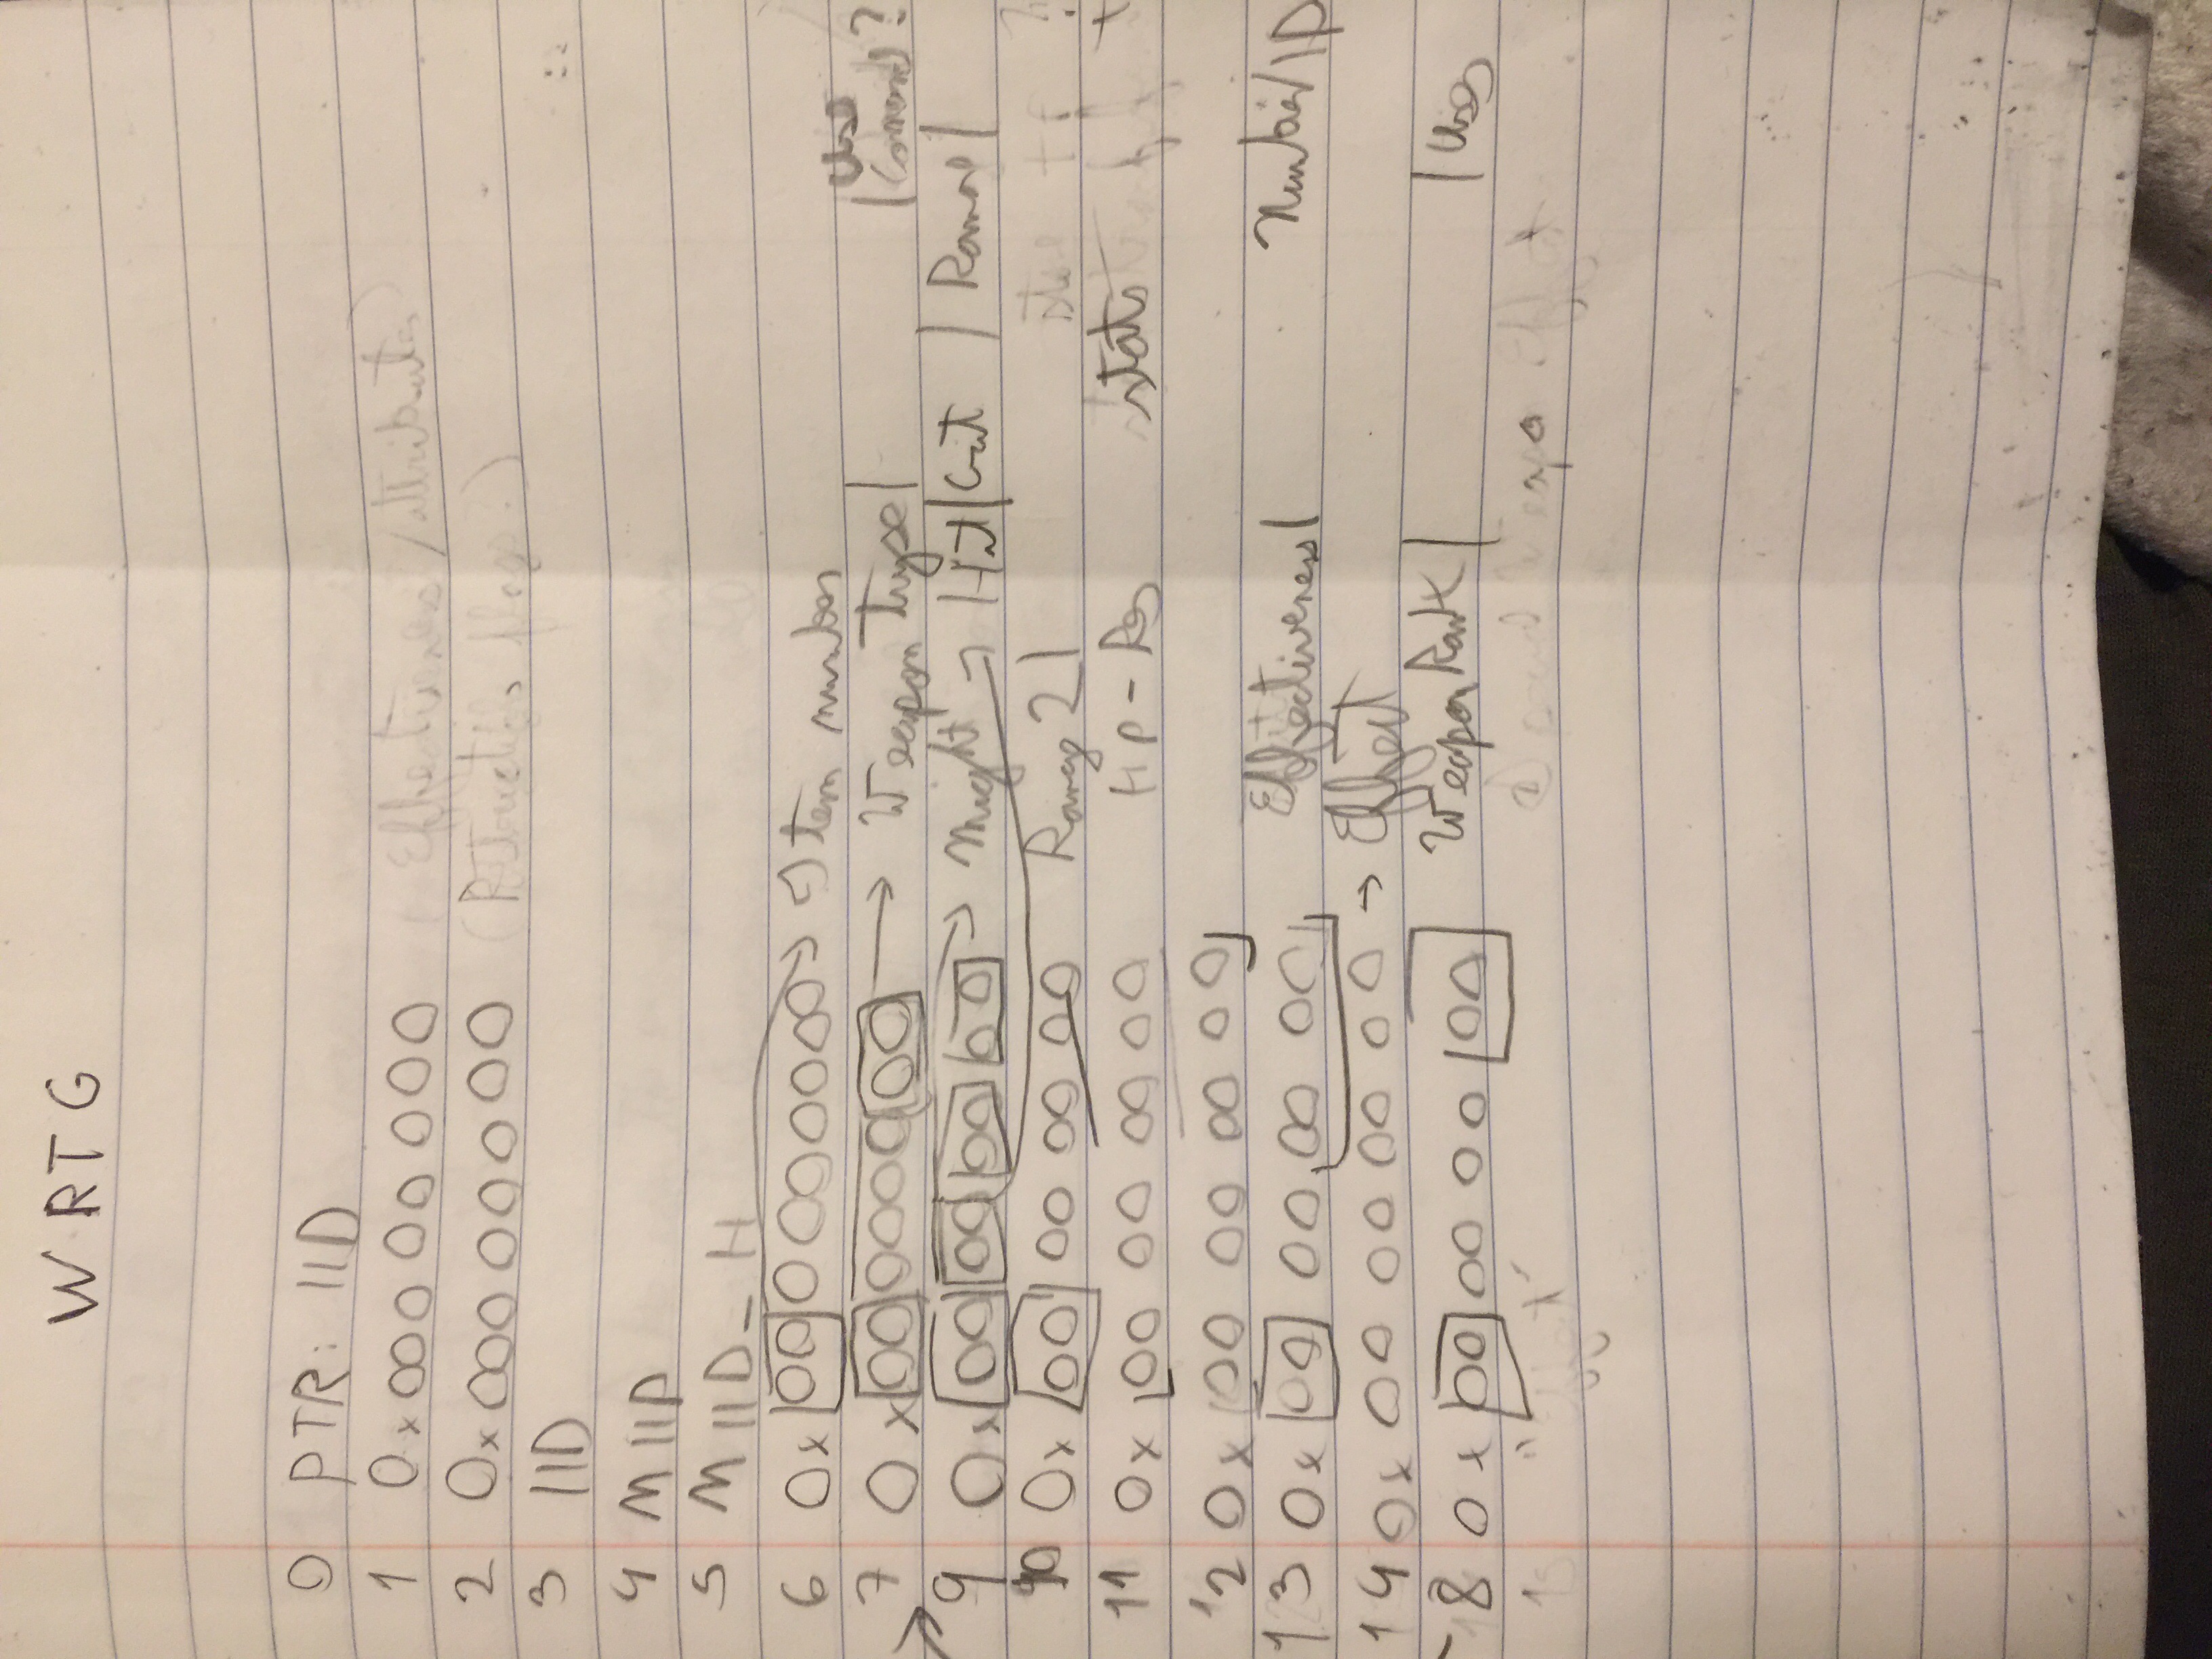 W R T G
0 PTR: IID
1 0x00000000
2 0x00000000
3 IID
4 MIID
5 MIID_H
6 0x00000000 → Item number
7 0x00000000 → Weapon type | | Use Command ?
9 0x00000000 → Might → Hit | Crit | Range |
10 0x00 00 00 00 Range 2 |
11 0x00 00 00 00 HP - Res stats
12 0x00 00 00 00
13 0x00 00 00 00 Effectiveness | Number/ID
14 0x00 00 00 00 → Effect
8 0x00 00 00 00 Weapon Rank | | Uses